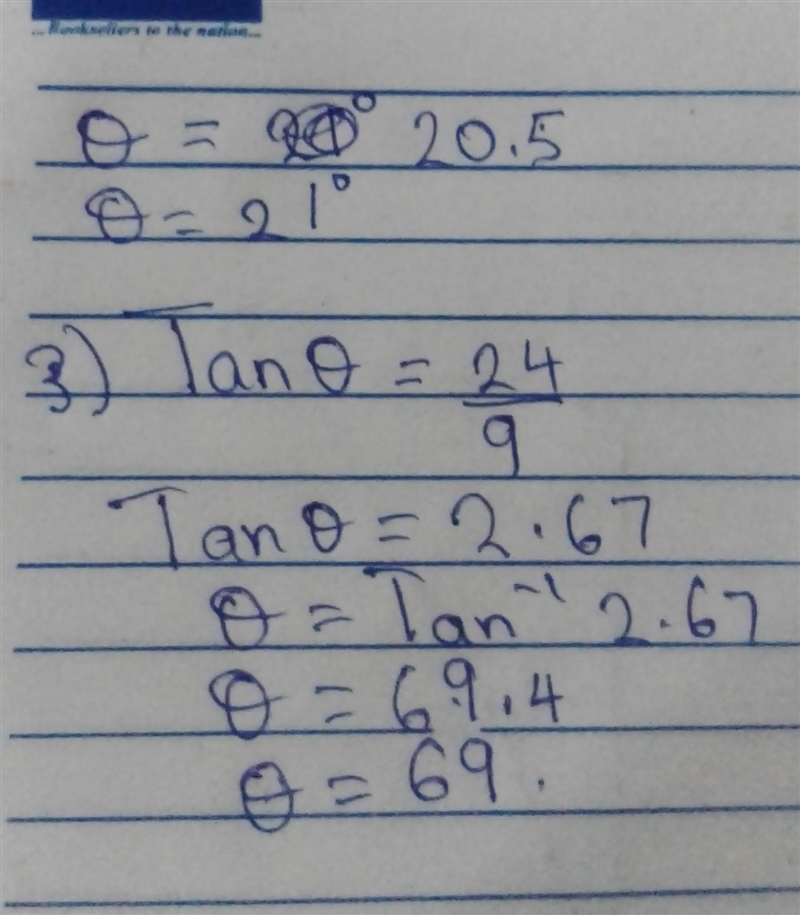 ...Booksellers to the nation...
θ = 20.5
θ = 21°
3) Tan θ = 24/9
Tan θ = 2.67
θ = Tan⁻¹ 2.67
θ = 69.4
θ = 69.